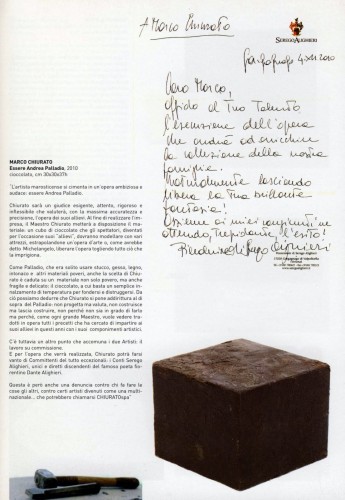 A Marco Chiurato
SEREGO ALIGHIERI
Gargagnago 4 XII 2010
Caro Marco,
affido al Tuo Talento
l'esecuzione dell'opera
che andrà ad arricchire
la collezione della nostra
famiglia.
Naturalmente lasciando
libera la Tua brillante
fantasia!
Assieme ai miei congiunti ne
attendo, trepidante, l'esito!
MARCO CHIURATO
Essere Andrea Palladio, 2010
cioccolato, cm 30x30x37h
"L'artista marosticense si cimenta in un'opera ambiziosa e
audace: essere Andrea Palladio.
Chiurato sarà un giudice esigente, attento, rigoroso e
inflessibile che valuterà, con la massima accortezza e
precisione, l'opera dei suoi allievi. Al fine di realizzare l'im-
presa, il Maestro Chiurato metterà a disposizione il ma-
teriale: un cubo di cioccolato che gli spettatori, diventati
per l'occasione suoi "allievi", dovranno modellare con vari
attrezzi, estrapolandone un'opera d'arte o, come avrebbe
detto Michelangelo, liberare l'opera togliendo tutto ciò che
la imprigiona.
Come Palladio, che era solito usare stucco, gesso, legno,
intonaco e altri materiali poveri, anche la scelta di Chiu-
rato è caduta su un materiale non solo povero, ma anche
fragile e delicato: il cioccolato, a cui basta un semplice in-
nalzamento di temperatura per fondersi e distruggersi. Da
ciò possiamo dedurre che Chiurato si pone addirittura al di
sopra del Palladio: non progetta ma valuta, non costruisce
ma lascia costruire, non perché non sia in grado di farlo
ma perché, come ogni grande Maestro, vuole vedere tra-
dotti in opera tutti i precetti che ha cercato di impartire ai
suoi allievi in questi anni con i suoi componimenti artistici.
C'è tuttavia un altro punto che accomuna i due Artisti: il
lavoro su commissione.
E per l'opera che verrà realizzata, Chiurato potrà farsi
vanto di Committenti del tutto eccezionali: i Conti Serego
Alighieri, unici e diretti discendenti del famoso poeta fio-
rentino Dante Alighieri.
Questa è però anche una denuncia contro chi fa fare le
cose gli altri, contro certi artisti divenuti come una multi-
nazionale... che potrebbero chiamarsi CHIURATOspa"